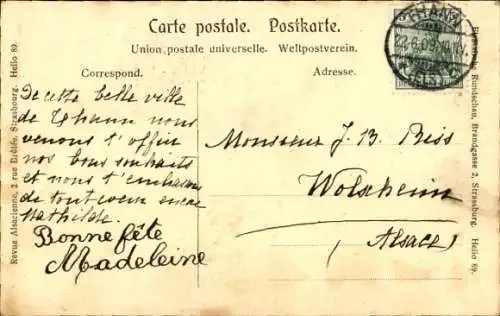 Carte postale. Postkarte.
Union postale universelle. Weltpostverein.
Correspond. Adresse.
THANN
22.6.09.
(ELS.)
De cette belle ville
de Thann nous
venons t'offrir
nos bons souhaits
et nous t'embrassons
de tout coeur
Mathilde.
Bonne fête
Madeleine
Monsieur J. B. Beiss
Wolxheim
(Alsace)
Revue Alsacienne, 2 rue Brûlée, Strasbourg. Helio 69.
Rundschau, Brandgasse 2, Strassburg. Helio 69.